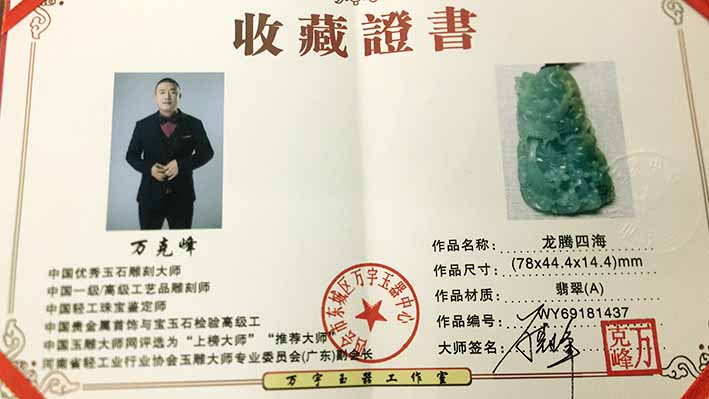 收藏證書
万克峰
中国优秀玉石雕刻大师
中国一级/高级工艺品雕刻师
中国轻工珠宝鉴定师
中国贵金属首饰与宝玉石检验高级工
中国玉雕大师网评选为“上榜大师”“推荐大师”
河南省轻工业行业协会玉雕大师专业委员会(广东)副会长
会市东城区万宇玉器中心
作品名称: 龙腾四海
作品尺寸: (78x44.4x14.4)mm
作品材质: 翡翠(A)
作品编号: WY69181437
大师签名:
万克峰
万宇玉器工作室